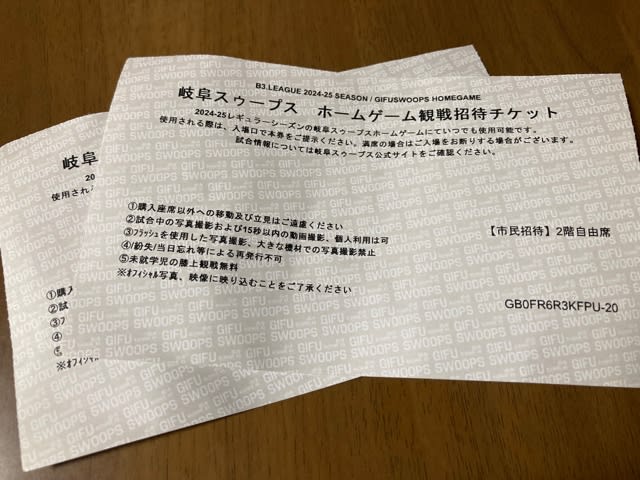 B3.LEAGUE 2024-25 SEASON / GIFUSWOOPS HOMEGAME
岐阜スゥープス ホームゲーム観戦招待チケット
2024-25レギュラーシーズンの岐阜スゥープスホームゲームにていつでも使用可能です。
使用される際は、入場口で本券をご提示ください。満席の場合はご入場をお断りする場合がございます。
試合情報については岐阜スゥープス公式サイトをご確認ください。
①購入座席以外への移動及び立見はご遠慮ください
②試合中の写真撮影および15秒以内の動画撮影、個人利用は可
③フラッシュを使用した写真撮影、大きな機材での写真撮影禁止
④紛失/当日忘れ等による再発行不可
⑤未就学児の膝上観戦無料
※オフィシャル写真、映像に映り込むことをご了承ください
【市民招待】2階自由席
GB0FR6R3KFPU-20
岐阜
20
使用され
①購入
②試
③フ
④
※オフィシャ
GIFU SWOOPS